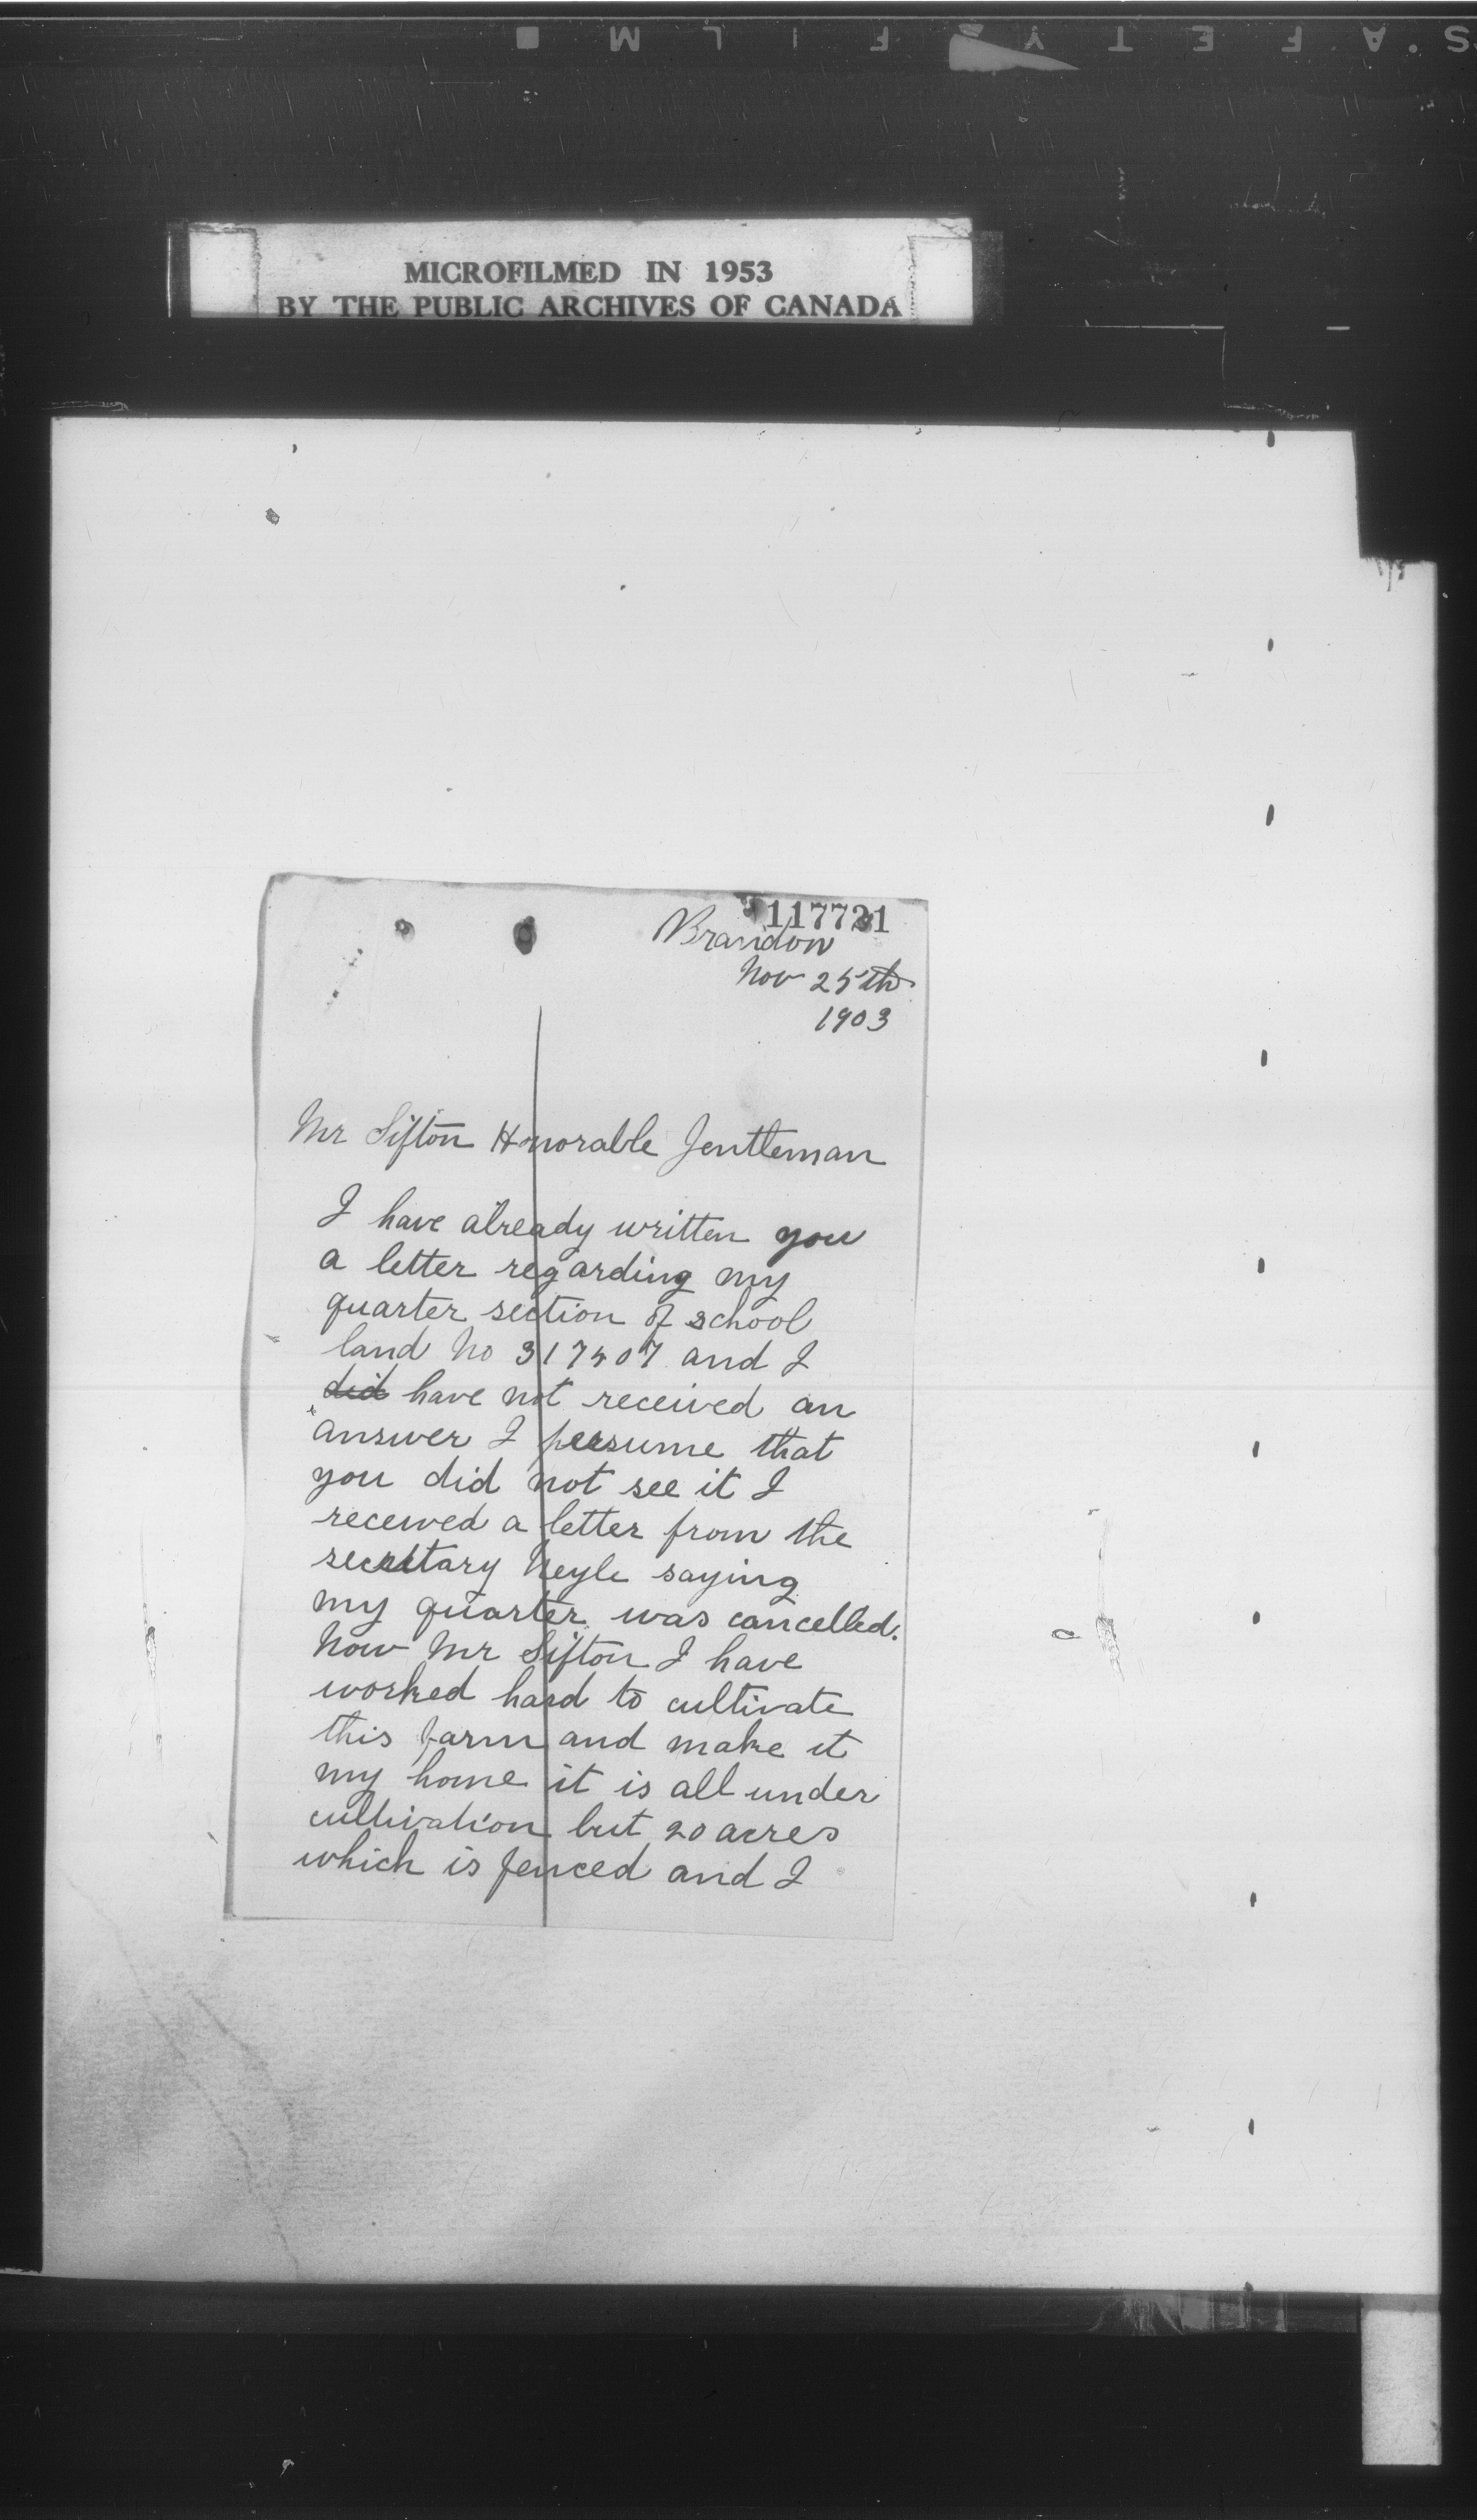 S.A.F.E.T.Y FILM ■
MICROFILMED IN 1953
BY THE PUBLIC ARCHIVES OF CANADA
117721
Brandon
Nov 25th
1903
Mr Sifton Honorable Jentleman
I have already written you
a letter regarding my
quarter section of school
land No 317507 and I
did have not received an
answer I persume that
you did not see it I
received a letter from the
secretary Keyle saying
my quarter was cancelled.
Now Mr Sifton I have
worked hard to cultivate
this farm and make it
my home it is all under
cultivation but 20 acres
which is fenced and I